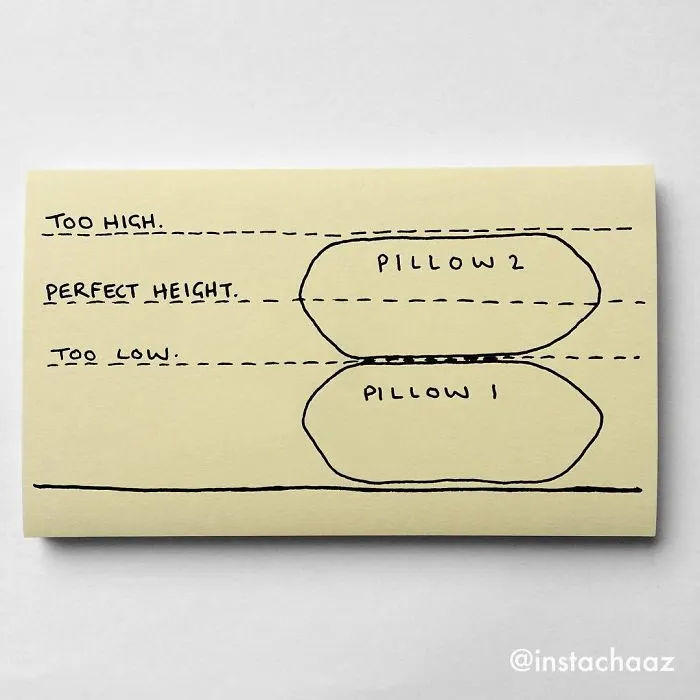 TOO HIGH.
PILLOW 2
PERFECT HEIGHT.
TOO LOW.
PILLOW 1
@instachaaz